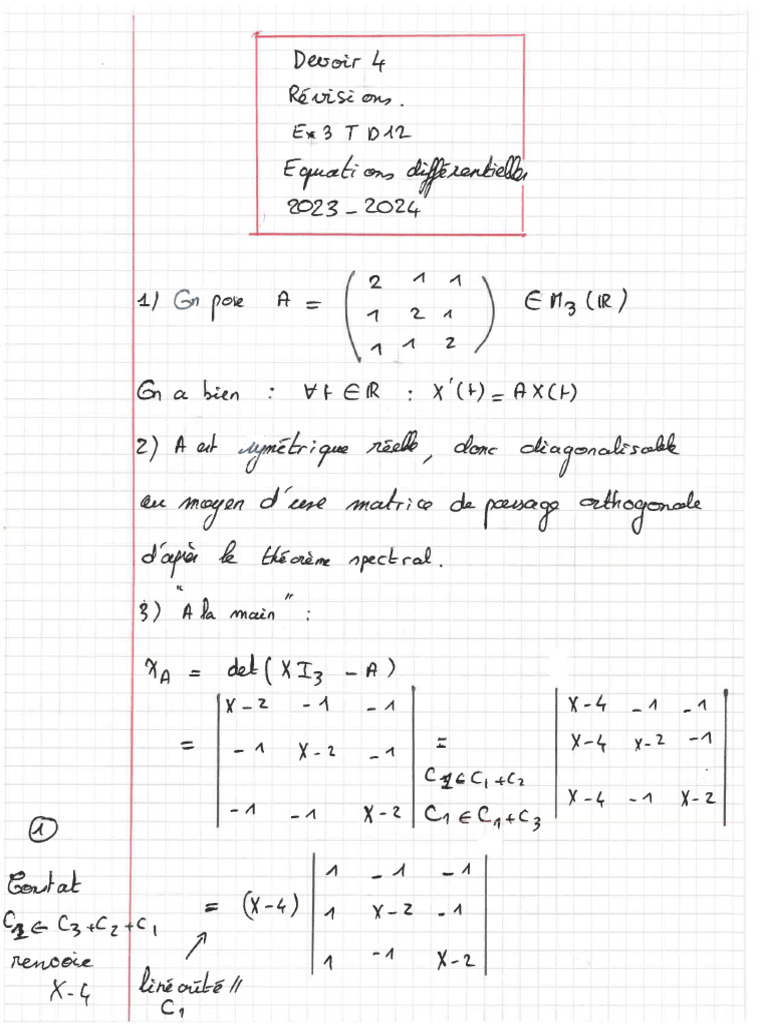 Devoir 4
Révisions.
Ex 3 TD12
Equations différentielles
2023-2024
1) On pose A = ( 2 1 1
1 2 1
1 1 2 ) ∈ M₃(ℝ)
On a bien : ∀t∈ℝ : X'(t) = AX(t)
2) A est symétrique réelle, donc diagonalisable
au moyen d'une matrice de passage orthogonale
d'après le théorème spectral.
3) "A la main" :
χ_A = det(XI₃ - A)
= | X-2 -1 -1
-1 X-2 -1
-1 -1 X-2 |
=
C₁ ← C₁+C₂
C₁ ← C₁+C₃
| X-4 -1 -1
X-4 X-2 -1
X-4 -1 X-2 |
= (X-4) | 1 -1 -1
1 X-2 -1
1 -1 X-2 |
linéarité //
C₁
①
Constat
C₁ ← C₃+C₂+C₁
renvoie
X-4